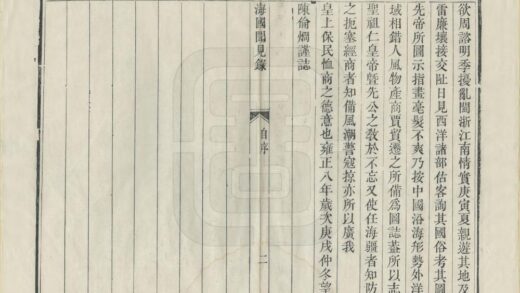 欲周諮明季擾亂閩浙江南情實庚寅夏親遊其地及
雷廉壤接交阯日見西洋諸部估客詢其國俗考其圖
先帝所圖示指畫毫髮不爽乃按中國沿海形勢外洋
域相錯人風物產商賈貿遷之所備爲圖誌蓋所以志
聖祖仁皇帝曁先公之敎於不忘又使任海疆者知防
之扼塞經商者知備風潮警寇掠亦所以廣我
皇上保民恤商之德意也雍正八年歲次庚戌仲冬望
陳倫烱謹誌
海國聞見錄
自序
二